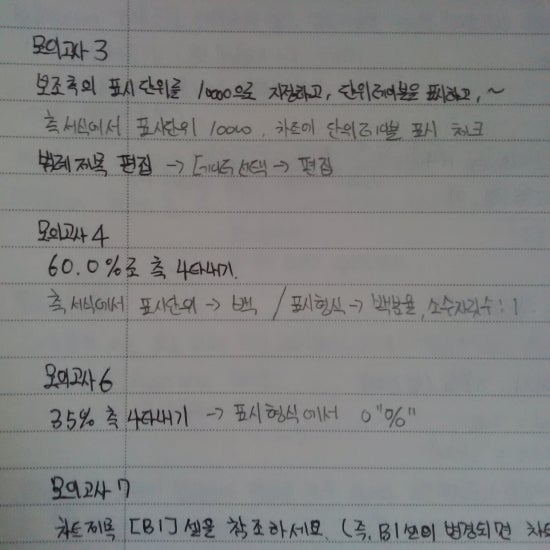 모의고사 3
보조축의 표시단위를 10000으로 지정하고, 단위레이블을 표시하고, ~
축서식에서 표시단위 10000, 차트에 단위레이블 표시 체크
범례 제목 편집 → 데이터 선택 → 편집
모의고사 4
60.0%로 축 나타내기.
축서식에서 표시단위 → 백 / 표시형식 → 백분율, 소수자릿수 : 1
모의고사 6
35% 축 나타내기 → 표시형식에서 0"%"
모의고사 7
차트제목 [B1] 셀을 참조하세요. (즉, B1셀이 변경되면 차트